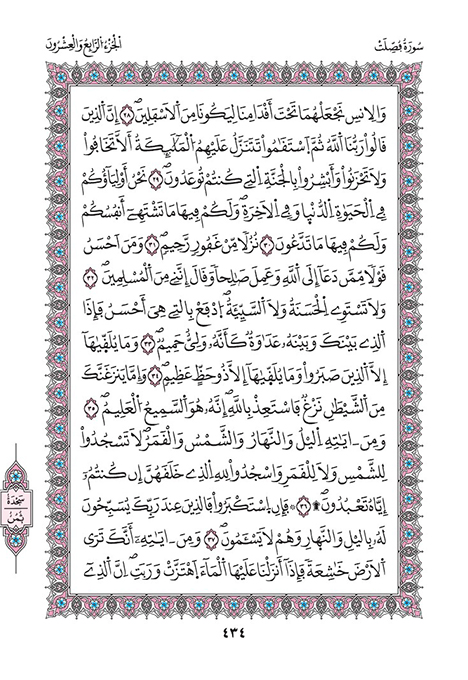 سُورَةُ فُصِّلَتْ
اَلْجُزْءُ الرَّابِعُ وَالْعِشْرُونَ
وَالِانسِ نَجْعَلْهُمَا تَحْتَ أَقْدَامِنَا لِيَكُونَا مِنَ اَلَاسْفَلِينَۖ ٢٨ إِنَّ اَلذِينَ
قَالُواْ رَبُّنَا اَللَّهُ ثُمَّ اَسْتَقَٰمُواْ تَتَنَزَّلُ عَلَيْهِمُ اُلْمَلَٰٓئِكَةُ أَلَّا تَخَافُواْ
وَلَا تَحْزَنُواْ وَأَبْشِرُواْ بِالْجَنَّةِ اِلتِے كُنتُمْ تُوعَدُونَۖ ٢٩ نَحْنُ أَوْلِيَآؤُكُمْ
فِے اِلْحَيَوٰةِ اِلدُّنْي۪ا وَفِے اِلَاخِرَةِۖ وَلَكُمْ فِيهَا مَا تَشْتَهِےٓ أَنفُسُكُمْ
وَلَكُمْ فِيهَا مَا تَدَّعُونَۖ ٣٠ نُزُلاٗ مِّنْ غَفُورٖ رَّحِيمٖۖ ٣١ وَمَنَ اَحْسَنُ
قَوْلاٗ مِّمَّن دَعَآ إِلَى اَللَّهِ وَعَمِلَ صَٰلِحاٗ وَقَالَ إِنَّنِے مِنَ اَلْمُسْلِمِينَۖ ٣٢
وَلَا تَسْتَوِے اِلْحَسَنَةُ وَلَا اَلسَّيِّئَةُۖ اُ۪دْفَعْ بِالتِے هِيَ أَحْسَنُ فَإِذَا
اَلذِے بَيْنَكَ وَبَيْنَهُۥ عَدَٰوَةٞ كَأَنَّهُۥ وَلِيٌّ حَمِيمٞۖ ٣٣ وَمَا يُلَقَّيٰهَآ
إِلَّا اَلذِينَ صَبَرُواْ وَمَا يُلَقَّيٰهَآ إِلَّا ذُو حَظٍّ عَظِيمٖۖ ٣٤ وَإِمَّا يَنزَغَنَّكَ
مِنَ اَلشَّيْطَٰنِ نَزْغٞ فَاسْتَعِذْ بِاللَّهِۖ إِنَّهُۥ هُوَ اَلسَّمِيعُ اُلْعَلِيمُۖ ٣٥
وَمِنَ ـ اٰيَٰتِهِ اِليْلُ وَالنَّهَارُ وَالشَّمْسُ وَالْقَمَرُۖ لَا تَسْجُدُواْ
لِلشَّمْسِ وَلَا لِلْقَمَرِ وَاسْجُدُواْ لِلهِ اِلذِے خَلَقَهُنَّ إِن كُنتُمُۥٓ
إِيَّاهُ تَعْبُدُونَۖ ۩ ٣٦ فَإِنِ اِسْتَكْبَرُواْ فَالذِينَ عِندَ رَبِّكَ يُسَبِّحُونَ
لَهُۥ بِاليْلِ وَالنَّهَارِ وَهُمْ لَا يَسْـَٔمُونَۖ ٣٧ وَمِنَ ـ اٰيَٰتِهِۦٓ أَنَّكَ تَرَى
اَلَارْضَ خَٰشِعَةٗ فَإِذَآ أَنزَلْنَا عَلَيْهَا اَلْمَآءَ اَهْتَزَّتْ وَرَبَتِۖ اِنَّ اَلذِےٓ
سَجْدَة
ثُمُن
٤٣٤